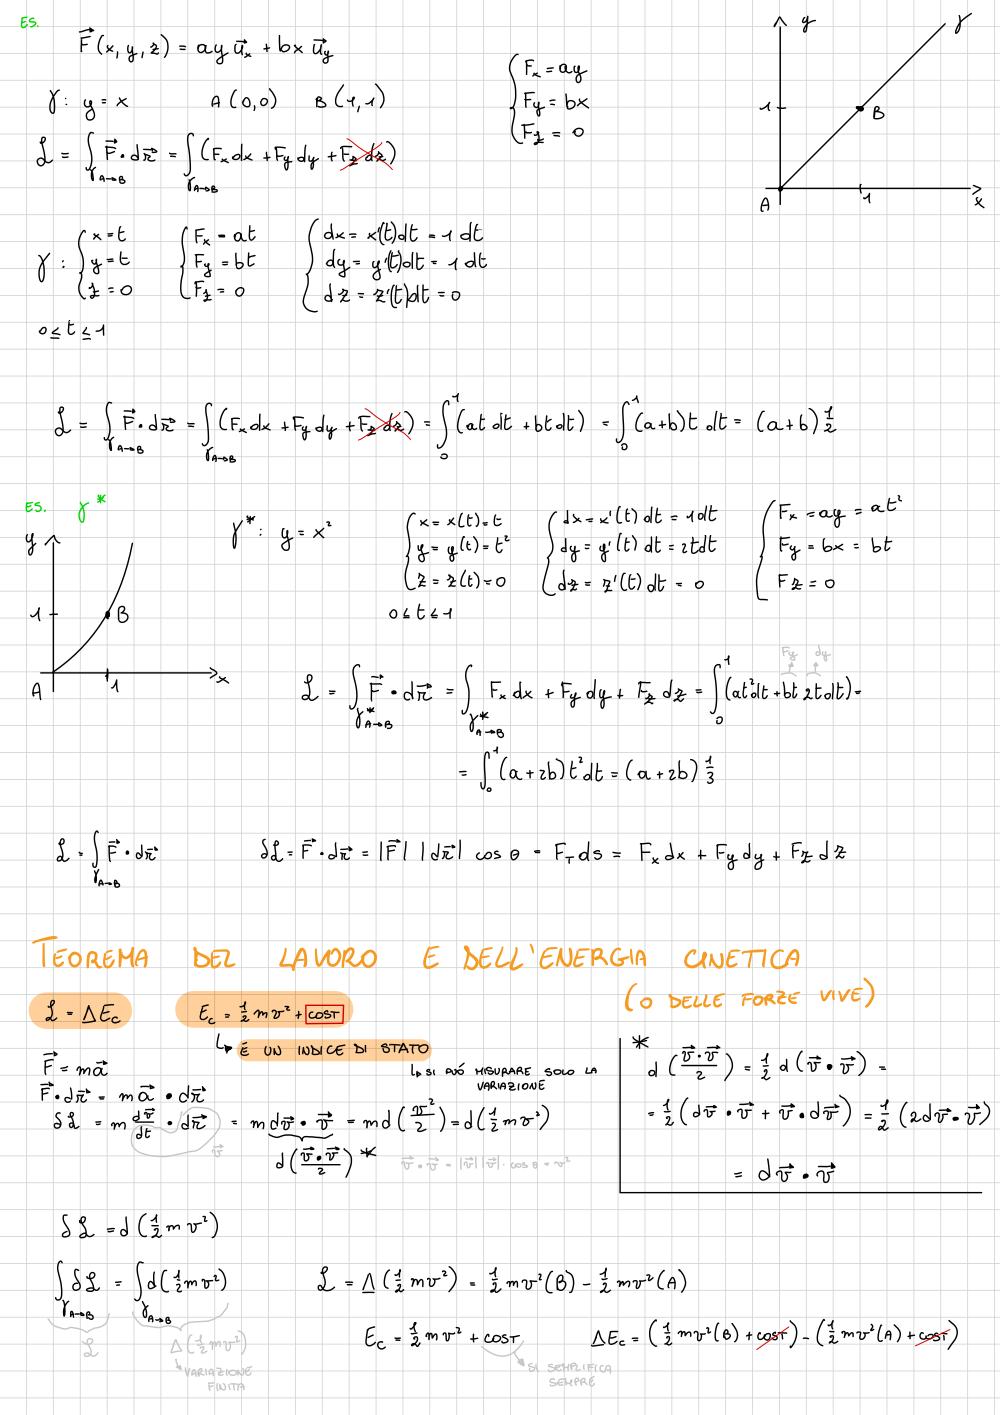 ES.
F⃗(x, y, z) = ay u⃗ₓ + bx u⃗ᵧ
{ Fₓ = ay
Fᵧ = bx
F_z = 0
γ: y = x A(0,0) B(1,1)
ℒ = ∫_{γA→B} F⃗ • dr⃗ = ∫_{γA→B} (Fₓdx + Fᵧdy + F_z dz)
y γ 1 B A 1 x
γ: { x = t { Fₓ = at { dx = x'(t)dt = 1 dt
y = t Fᵧ = bt dy = y'(t)dt = 1 dt
z = 0 F_z = 0 dz = z'(t)dt = 0
0 ≤ t ≤ 1
ℒ = ∫_{γA→B} F⃗ • dr⃗ = ∫_{γA→B} (Fₓdx + Fᵧdy + F_z dz) = ∫₀¹ (at dt + bt dt) = ∫₀¹ (a+b)t dt = (a+b) ½
ES. γ*
y 1 B A 1 x
γ*: y = x²
{ x = x(t) = t { dx = x'(t) dt = 1dt { Fₓ = ay = at²
y = y(t) = t² dy = y'(t) dt = 2tdt Fᵧ = bx = bt
z = z(t) = 0 dz = z'(t) dt = 0 F_z = 0
0 ≤ t ≤ 1
Fy dy
ℒ = ∫_{γ*A→B} F⃗ • dr⃗ = ∫_{γ*A→B} Fₓdx + Fᵧdy + F_z dz = ∫₀¹ (at²dt + bt 2tdt) =
= ∫₀¹ (a+2b)t²dt = (a+2b) ⅓
ℒ = ∫_{γA→B} F⃗ • dr⃗ δℒ = F⃗ • dr⃗ = |F⃗| |dr⃗| cos θ = F_T ds = Fₓdx + Fᵧdy + F_z dz
TEOREMA DEL LAVORO E DELL'ENERGIA CINETICA
(O DELLE FORZE VIVE)
ℒ = ΔE_c E_c = ½ mv² + COST
↳ É UN INDICE DI STATO
↳ SI PUÓ MISURARE SOLO LA
VARIAZIONE
F⃗ = ma⃗
F⃗ • dr⃗ = ma⃗ • dr⃗
δℒ = m dv⃗/dt • dr⃗ = m dv⃗ • v⃗ = md(v²/2) = d(½ mv²)
v⃗
d(v⃗•v⃗/2) *
v⃗ • v⃗ = |v⃗| |v⃗| · cos θ = v²
*
d(v⃗•v⃗/2) = ½ d(v⃗ • v⃗) =
= ½ (dv⃗ • v⃗ + v⃗ • dv⃗) = ½ (2dv⃗ • v⃗)
= dv⃗ • v⃗
δℒ = d(½ mv²)
∫_{γA→B} δℒ = ∫_{γA→B} d(½mv²) ℒ = Δ(½ mv²) = ½ mv²(B) − ½ mv²(A)
ℒ Δ(½mv²)
↳ VARIAZIONE
FINITA
E_c = ½ mv² + COST ΔE_c = (½ mv²(B) + COST) − (½ mv²(A) + COST)
↳ SI SEMPLIFICA
SEMPRE